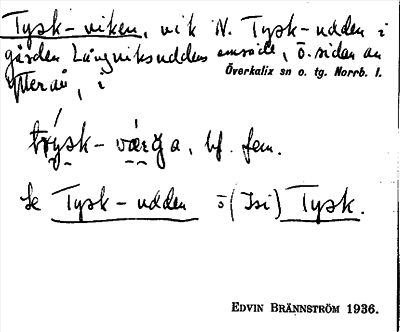 Tysk-viken, vik N. Tysk-udden i
gården Långviksuddens område, ö. sidan av
Överkalix sn o. tg. Norrb. l.
bf. fem.
Se Tysk-udden o (Isi) Tysk.
EDVIN BRÄNNSTRÖM 1936.